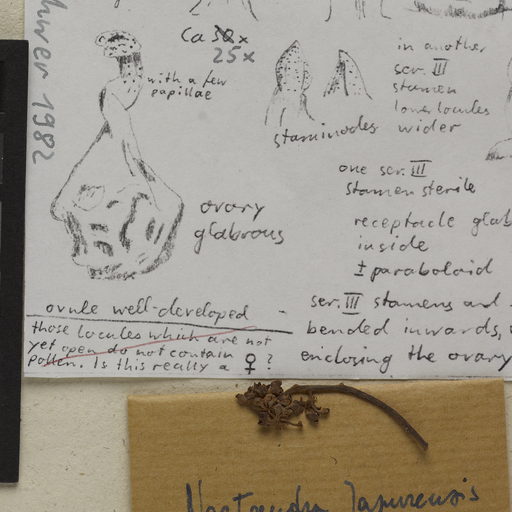 hwer 1982
Ca 30x
25x
with a few
papillae
staminodes
in another
ser. III
stamen
lower locules
wider
one ser. III
stamen sterile
ovary
glabrous
receptacle glab
inside
± paraboloid
ovule well-developed -
those locules which are not
yet open do not contain
pollen. Is this really a ♀ ?
ser. III stamens and
bended inwards,
enclosing the ovary
Nectandra Japurensis